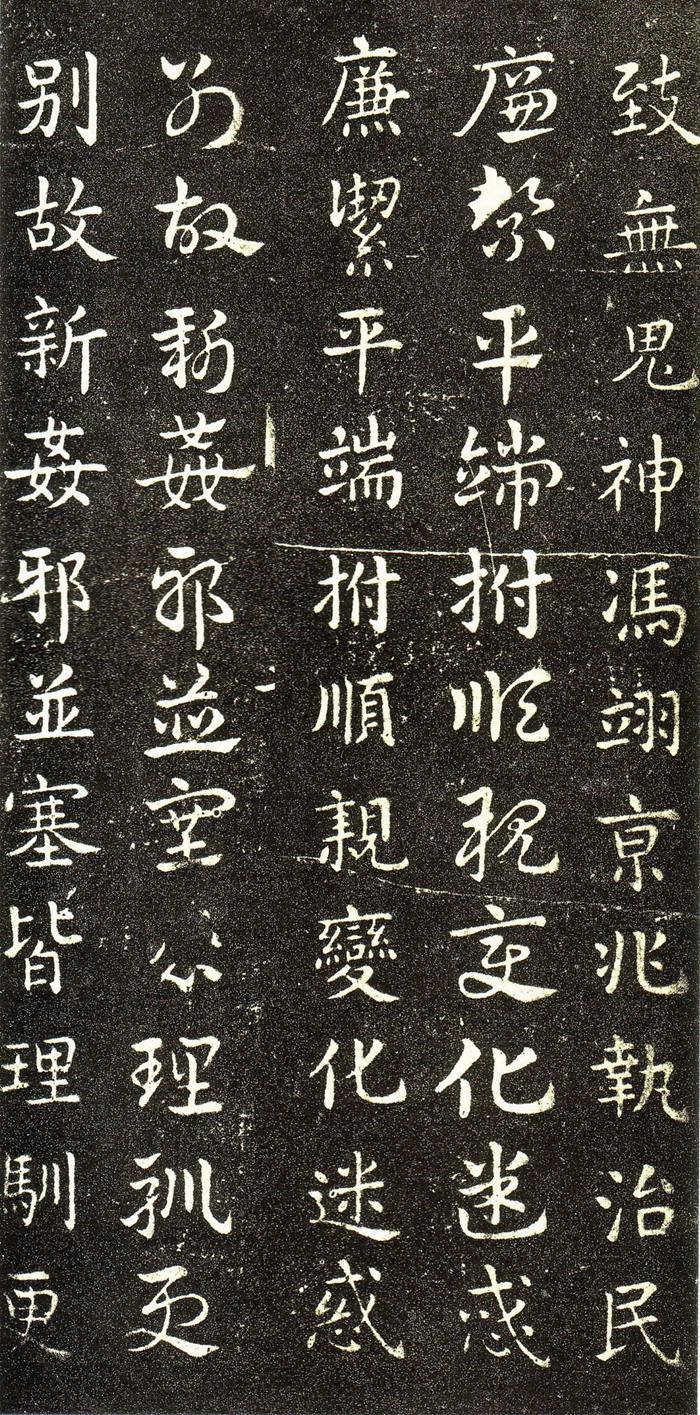 致無鬼神馮翊京兆執治民
廉絜平端拊順親變化迷惑
廉潔平端拊順親變化迷惑
別故新姦邪並塞皆理馴更
別故新姦邪並塞皆理馴更